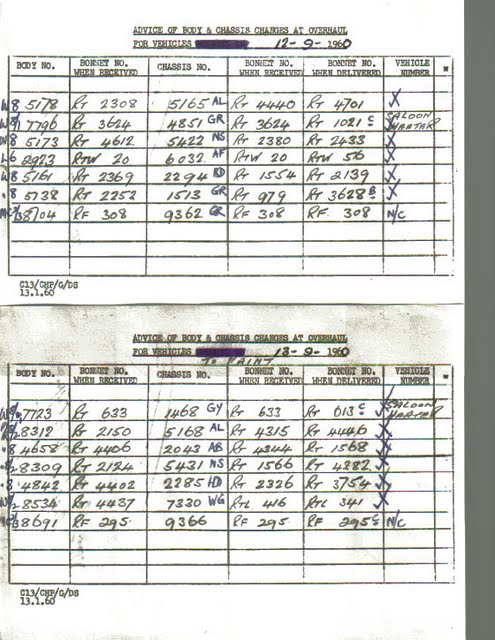 ADVICE OF BODY & CHASSIS CHANGES AT OVERHAUL
FOR VEHICLES 12-9-1960
BODY NO. BONNET NO. WHEN RECEIVED CHASSIS NO. BONNET NO. WHEN RECEIVED BONNET NO. WHEN DELIVERED VEHICLE NUMBER
W8 5178 RT 2308 5165 AL RT 4440 RT 4701 X
7796 RT 3624 4851 GR RT 3624 RT 1021 C SALOON HEATER
5173 RT 4612 5422 NS RT 2380 RT 2433 X
L6 2923 RTW 20 6032 AF RTW 20 RTW 56 X
W8 5161 RT 2369 2294 RD RT 1554 RT 2139 X
8 5738 RT 2252 1513 GR RT 979 RT 3628 B X
8704 RF 308 9362 GR RF 308 RF 308 N/C
C13/CHP/G/DS
13.1.60
ADVICE OF BODY & CHASSIS CHANGES AT OVERHAUL
FOR VEHICLES 13-9-1960
TO PAINT
BODY NO. BONNET NO. WHEN RECEIVED CHASSIS NO. BONNET NO. WHEN RECEIVED BONNET NO. WHEN DELIVERED VEHICLE NUMBER
7723 RT 633 1468 GY RT 633 RT 613 C SALOON HEATER
8312 RT 2150 5168 AL RT 4315 RT 4446 X
8 4658 RT 4406 2043 AB RT 4344 RT 1568 X
8309 RT 2124 5431 NS RT 1566 RT 4282 X
8 4842 RT 4402 2285 HD RT 2326 RT 3754 X
8534 RT 4437 7330 WG RTL 416 RTL 341 X
8691 RF 295 9366 RF 295 RF 295 C N/C
C13/CHP/G/DS
13.1.60